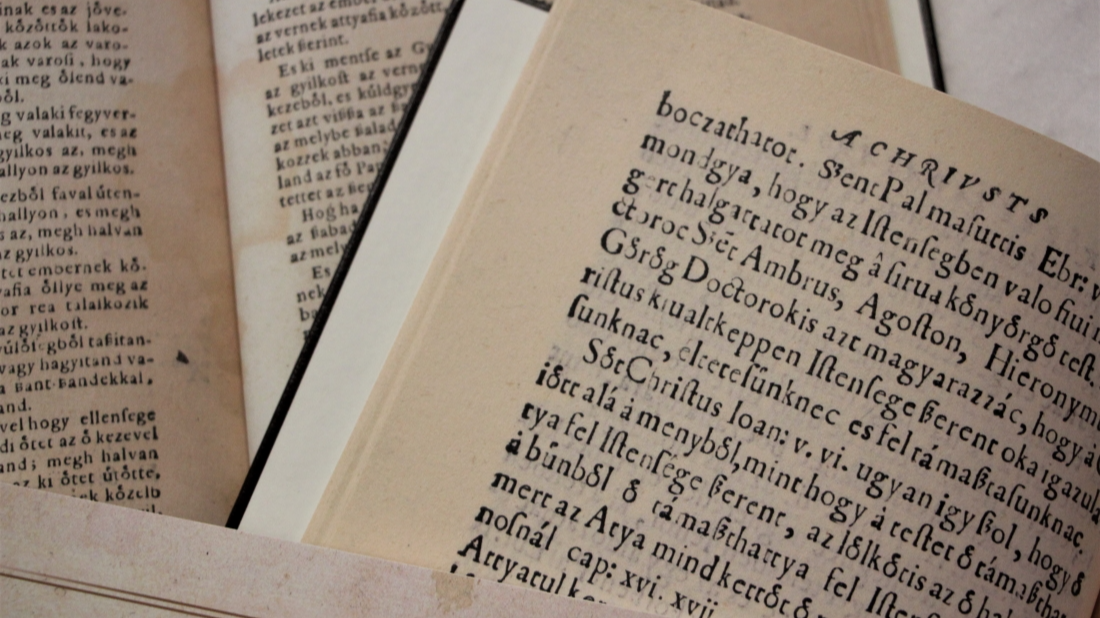 inak es az jőve.
kőzőttők lako-
k azok az varo-
ak varosi, hogy
ki meg őlend va-
ből.
g valaki fegyver-
meg valakit, es az
gyilkos az, megh
hallyon az gyilkos.
ezből faval úten-
hallyon, es megh
s az, megh halvan
az gyilkos.
tet embernek kő-
yafia őllye meg az
or rea talalkozik
az gyilkost.
vagy hagyitand va-
ßant-ßandekkal,
and.
vel hogy ellenſege
di őtet az ő kezevel
and; megh halvan
az ki őtet útőtte,
kőzelb
lekezet az ember,
az vernek attyafia kőzőtt,
letek ßerint.
Es ki mentſe az
az gyilkoſt az
kezeből, es kúldgye
zet azt viſſza az
az melybe ßalad
kozzek abban
land az fő Pap
tettet az
Hogha
az ßabad
az mely
Es
nek
A CHRIVSTS
boczathatot. SzentPal maſuttis Ebr:
mondgya, hogy az Iſtenſegben valo fiui
gert halgattatot meg â ſirua kőnyőrgő teſt.
ctoroc Sz̃et Ambrus, Agoſton, Hieronym
Gőrőg Doctorokis azt magyarazzác, hogy à
riſtus kiualtkeppen Iſtenſege ßerent oka igazul
ſunknac, életeſúnknec es fel támaßtaſunknac.
Sőt Chriſtus Ioan: v. vi. ugyan igy ßol, hogy ő
iőtt alá à menyből, mint hogy à teſtet ő támaßtha
tya fel Iſtenſege ßerent, az lőlkőtis az ő
à búnből ő támaßthattya fel Iſten
mert az Atya mind kettőt ő
noſnál cap: xvi. xvii
Attyatul